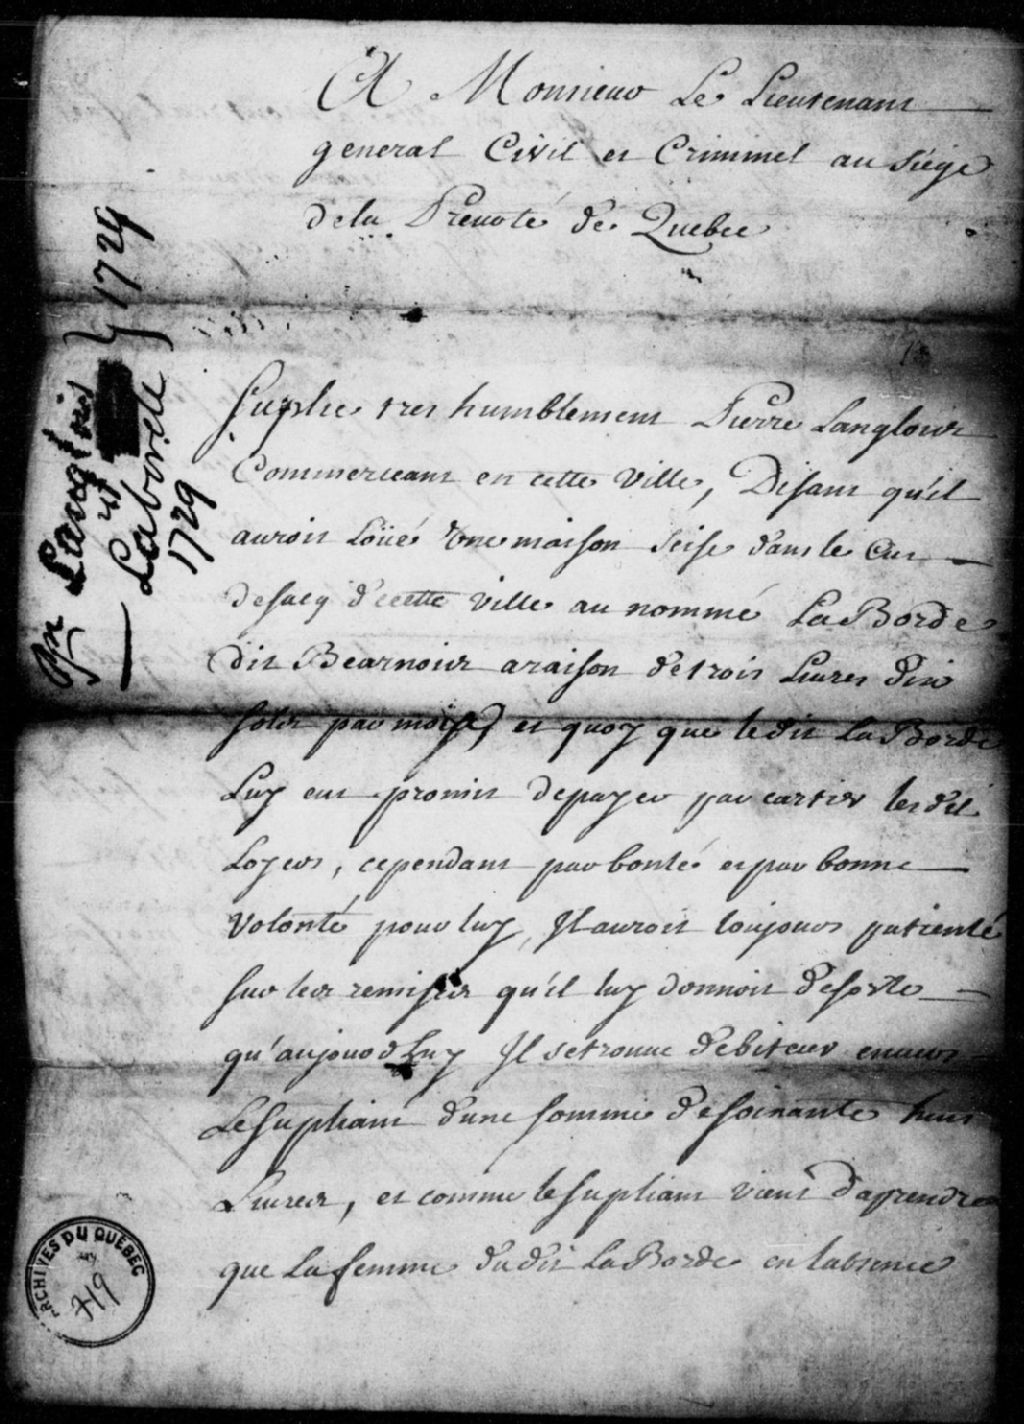 A Monsieur Le Lieutenant
general Civil et Criminel au siége
dela Prevoté de Quebec
Suplie tres humblement Pierre Langlois
Commerceant en cette Ville, Disant qu'il
auroit Loüé une maison seise dans le Cur
desacq d'cette Ville au nommé La Borde
dit Bearnois araison detrois Livres dix
sols par mois, et quoy que ledit La Borde
Luy eut promis depayer par cartier lesdit
Loyers, cependant par bonté et par bonne
Volonté pour luy, Il auroit toujours patienté
sur les remises qu'il luy donnoit desorte
qu'aujourdhuy Il setrouve debiteur envers
Lesupliant d'une somme desoixante huit
Livres, et comme lesupliant vient d'aprendre
que La femme dudit La Borde en labsence
Langlois
et
Laborde
} 1729
1729
ARCHIVES DU QUÉBEC
719